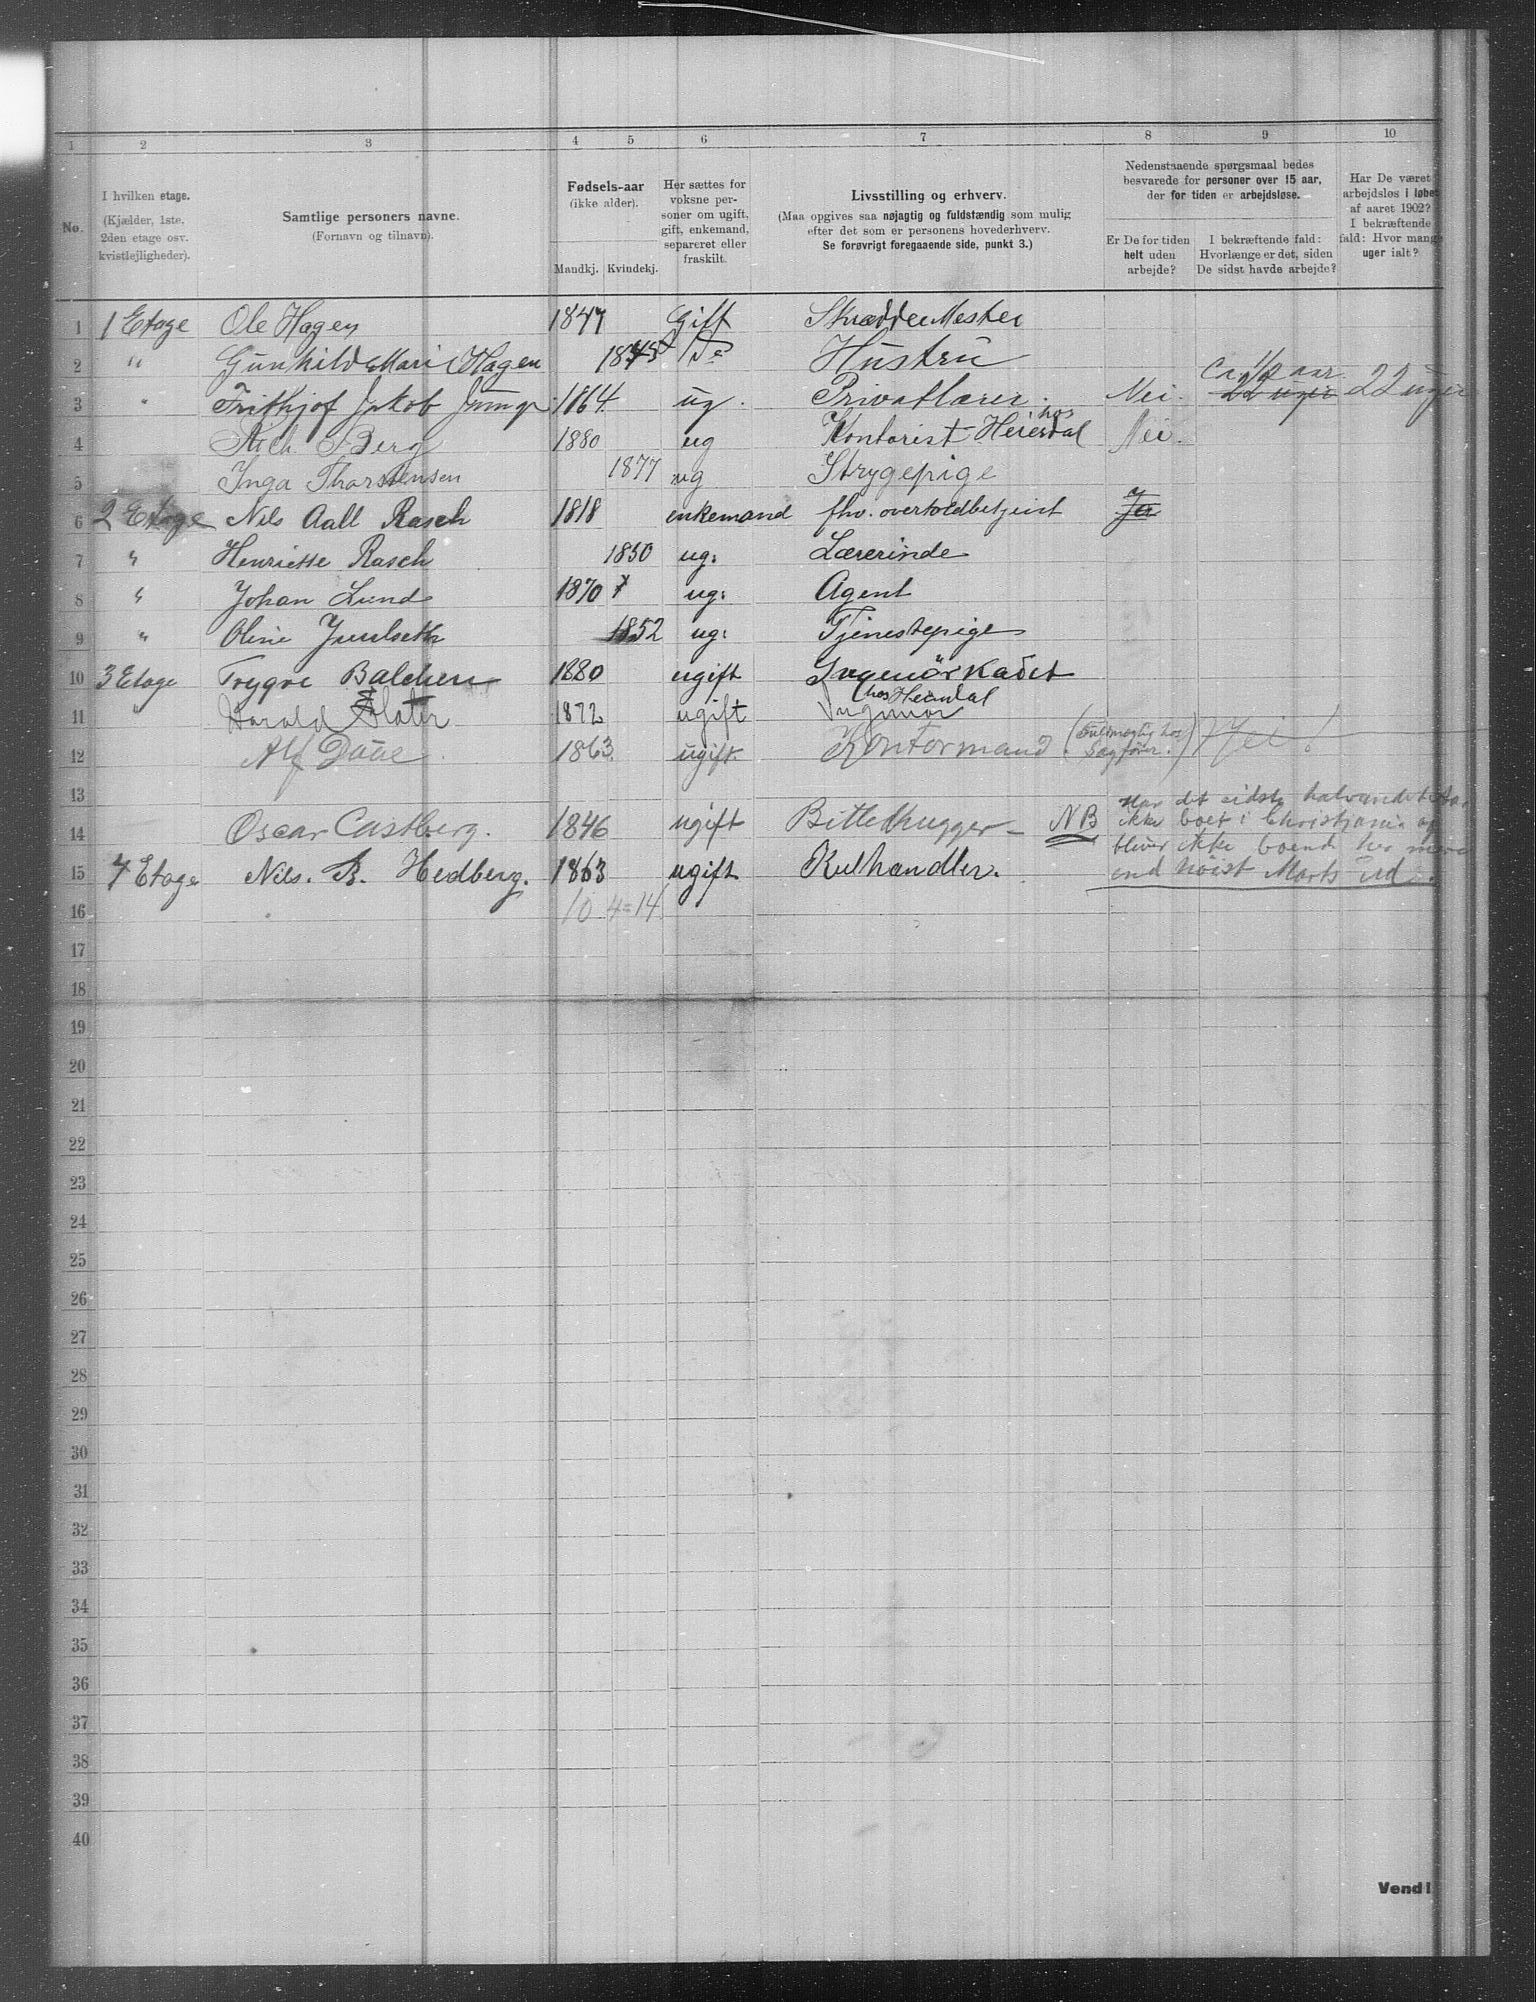 1 2 3 4 5 6 7 8 9 10
No.
I hvilken etage.
(Kjælder, 1ste,
2den etage osv.
kvistlejligheder).
Samtlige personers navne.
(Fornavn og tilnavn).
Fødsels-aar
(ikke alder).
Mandkj. Kvindekj.
Her sættes for
voksne per-
soner om ugift,
gift, enkemand,
separeret eller
fraskilt.
Livsstilling og erhverv.
(Maa opgives saa nøjagtig og fuldstændig som mulig
efter det som er personens hovederhverv.
Se forøvrigt foregaaende side, punkt 3.)
Nedenstaaende spørgsmaal bedes
besvarede for personer over 15 aar,
der for tiden er arbejdsløse.
Er De for tiden
helt uden
arbejde?
I bekræftende fald:
Hvorlænge er det, siden
De sidst havde arbejde?
Har De været
arbejdsløs i løbet
af aaret 1902?
I bekræftende
fald: Hvor mang
uger ialt?
1 1 Etage Ole Hagen 1847 Gift SkrædderMester
2 " Gunhild Mari Hagen 1845 Do Hustru
3 " Frithjof Jakob 1864 ug. Privatlærer. Nei. Ca 1/2 aar 22 uger 22 uger
4 Berg 1880 ug Kontorist hos Heierdal Nei.
5 Inga Thorstensen 1877 ug Strygepige
6 2 Etage Nils Aall Rasch 1818 enkemand fhv. overtoldbetjent Ja
7 " Henriette Rasch 1850 ug: Lærerinde
8 " Johan Lund 1870 ug: Agent
9 " Oline Juulseth 1852 ug: Tjenestepige
10 3 Etage Trygve Balchen 1880 ugift Ingeniør Kadet
11 " Harald 1872 ugift
12 Alf Daae 1863 ugift Kontormand (fuldmægtig hos Sagfører.) Nei!
13
14 Oscar Castberg. 1846 ugift Billedhugger NB
Har det sidste halvandet Aar
ikke boet i Christjania og
bliver ikke boende her mere
end høist Marts ud.
15 7 Etage Nils. B. Hedberg. 1863 ugift Kulhandler.
16 10 4=14
17
18
19
20
21
22
23
24
25
26
27
28
29
30
31
32
33
34
35
36
37
38
39
40
Vend!